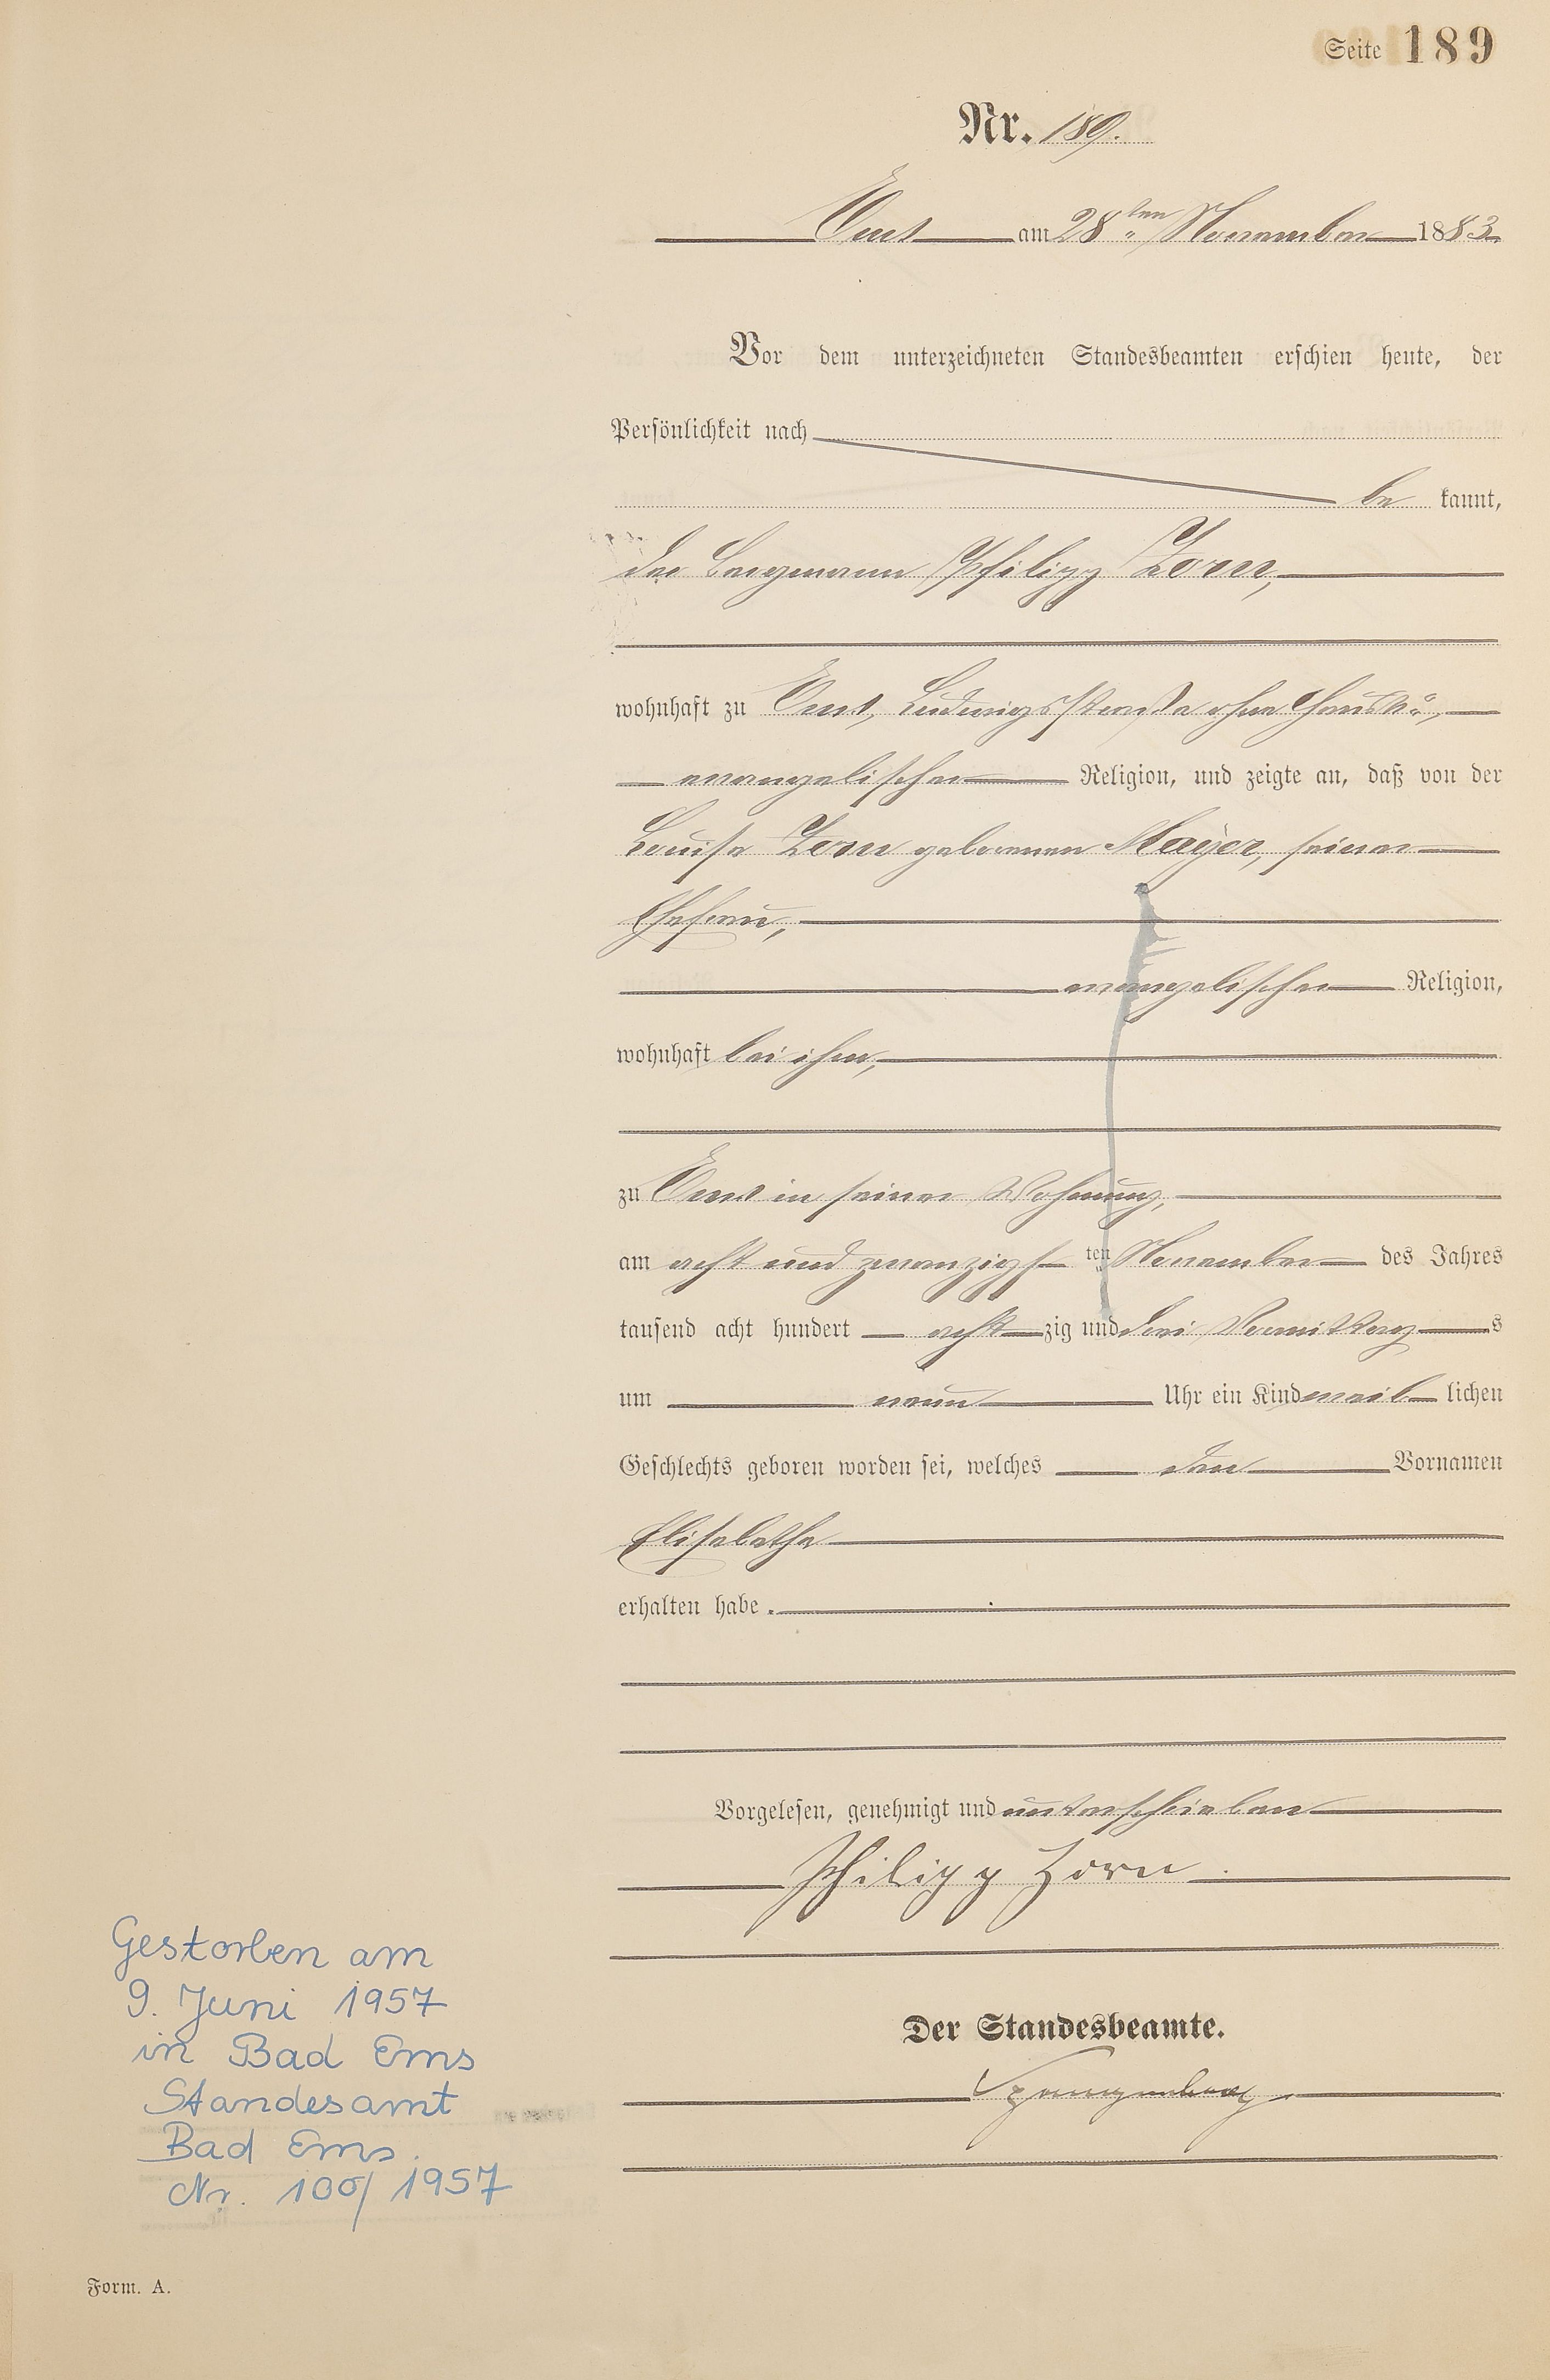 Seite 189
Nr. 189.
Ems am 28ten November 1883.
Vor dem unterzeichneten Standesbeamten erschien heute, der
Persönlichkeit nach
be kannt,
der Bergmann Philipp Zorn,
wohnhaft zu Ems, Ludwigsstraße ohne Haus No,
evangelischer Religion, und zeigte an, daß von der
Louise Zorn geborenen Mayer, seiner
Ehefrau,
evangelischer Religion,
wohnhaft bei ihm,
zu Ems in seiner Wohnung,
am acht und zwanzigs ten November des Jahres
tausend acht hundert acht zig und drei Vormittag s
um neun Uhr ein Kind weib lichen
Geschlechts geboren worden sei, welches den Vornamen
Elisabetha
erhalten habe.
Vorgelesen, genehmigt und unterschrieben
Philipp Zorn.
Der Standesbeamte.
Spangenberg
Gestorben am
9. Juni 1957
in Bad Ems
Standesamt
Bad Ems.
Nr. 100/1957
Form. A.